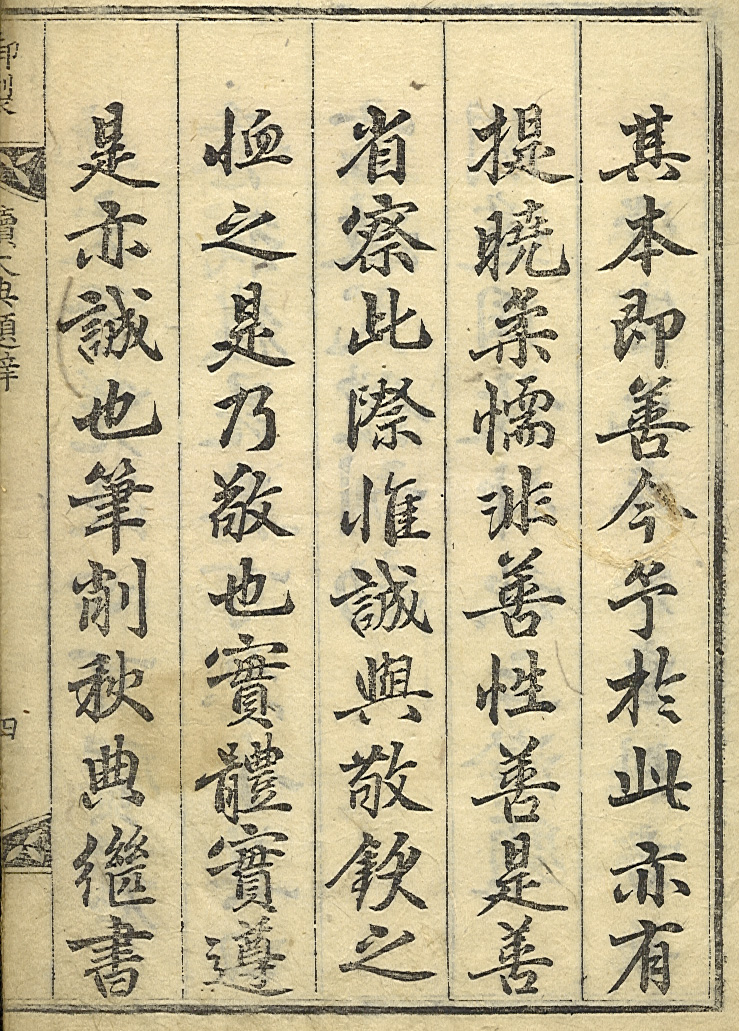 其本即善今予於此亦有
提曉柔懦非善性善是善
省察此際惟誠與敬欽之
恤之是乃敬也實體實遵
是亦誠也筆削秋典繼書
御製
續大典題辭
四